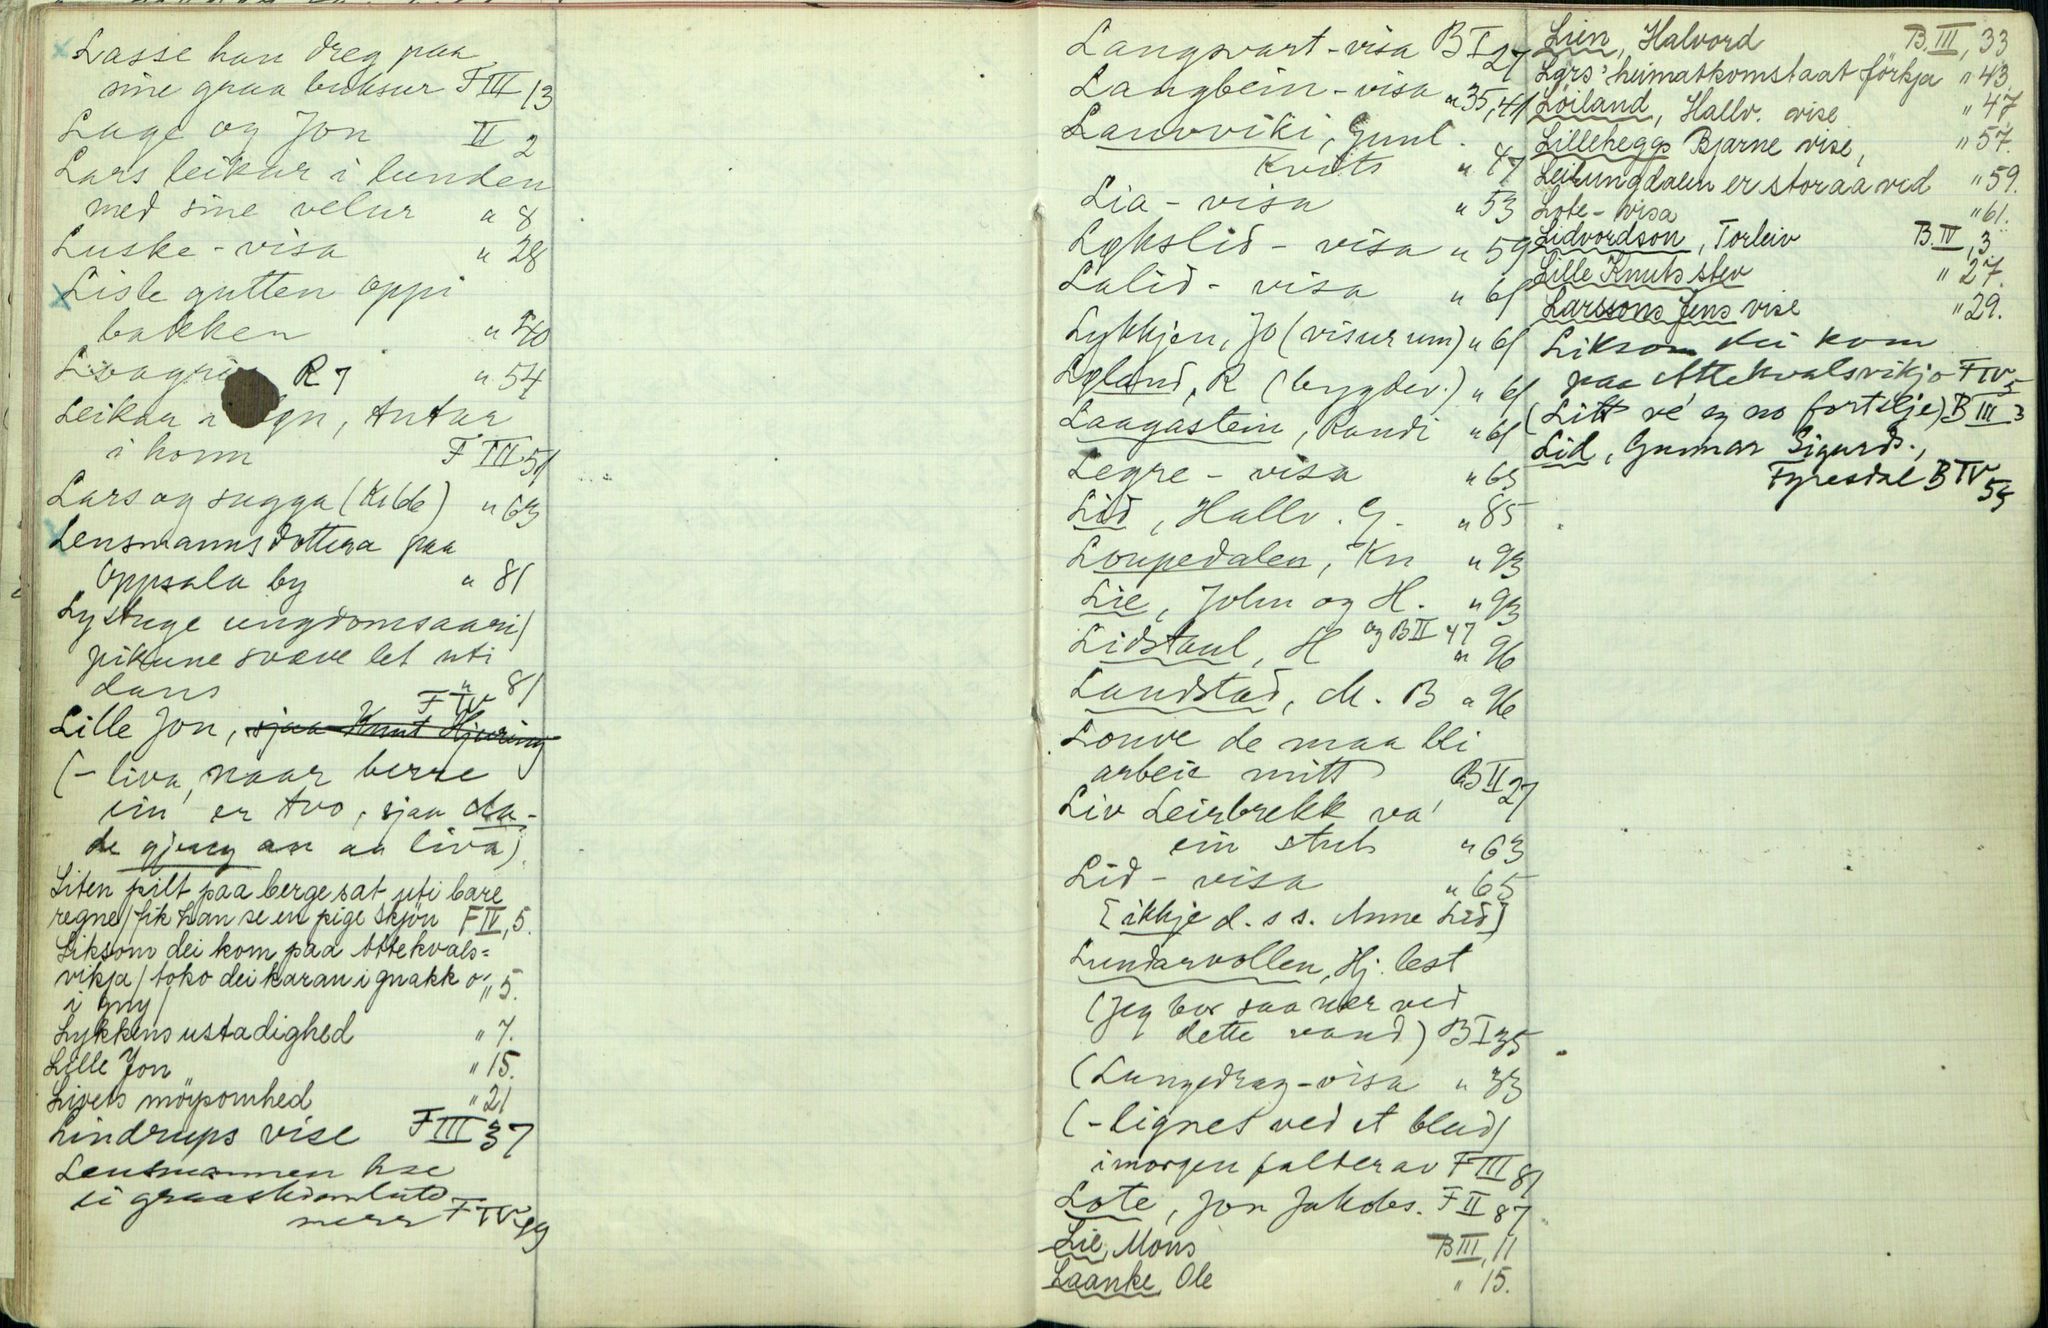 Lasse han dreg paa
sine graa buksur F III 13
Lage og Jon II 2
Lars leikar i lunden
med sine velur " 8
Luske-visa " 28
Lisle gutten oppi
bakken " 40
R 7 " 54
Leikar i
i honn F III 51
Lars og sugga (Kidde) " 63
Lensmannsdottera paa
Oppsala by " 81
Lystuge ungdomsaari/
pikune svæve let uti
dans " 81
F IV
Lille Jon, sjaa Knut Hjuring
(- liva, naar berre
ein er tvo, sjaa Aa -
de gjeng an aa liva)
Liten pilt paa berge sat uti bare
regne/fik han se en pige skjön F IV, 5.
Liksom dei kom paa Attekvals=
vikja / toko dei karan i gnakk o
i gny " 5.
Lykkens ustadighed " 7.
Lille Jon " 15.
Livets möysomhed " 21
Lindrups vise F III 37
Lensmannen hse
ei
merr F IV 99
Langsvart-visa B I 27
Langbein-visa " 35, 41
Lauvviki, Gunl.
Kvits " 47
Lia-visa " 53
Løkslid-visa " 59
Lalid-visa " 61
Lykkjen, Jo (visur um) " 61
Løland, R (bygdev.) " 61
Laagastein, Randi " 61
Legre-visa " 63
Lid, Hallv. G. " 85
Loupedalen, Kn " 93
Lie, John og H. " 93
og B II 47
Lidstaul, H " 96
Landstad, M. B " 96
Louve de maa bli
arbeie mitt B II 27
Liv Leirbrekk va'
ein stut " 63
Lid-visa " 65
[ikkje d. s s. Anne Lid]
Lundarvollen, Hj. lest
(Jeg bor saa nær ved
dette vand) B I 35
(Lungedrag-visa " 33
(- lignet ved et blad/
i morgen falter av F III 81
Lote, Jon Jakobs. F II 87
Lie, Mons B III, 11
Laanke, Ole " 15.
Lien, Halvord B. III, 33
Lars' heimatkomstaat förkja " 43.
Löiland, Hallv. vise " 47
Lilleheggs Bjarne vise, " 57.
Leikungdalen er stor aa vid " 59.
Lote-visa " 61.
Lidvordson, Torleiv B. IV, 3
Lille Knuts stev " 27.
Larssons Jens vise " 29.
Liksom dei kom
paa Attekvalsvikjo F IV 5
(Litt ve' eg no fortelje) B III 3
Lid, Gunnar Sigurds.,
Fyresdal B IV 55